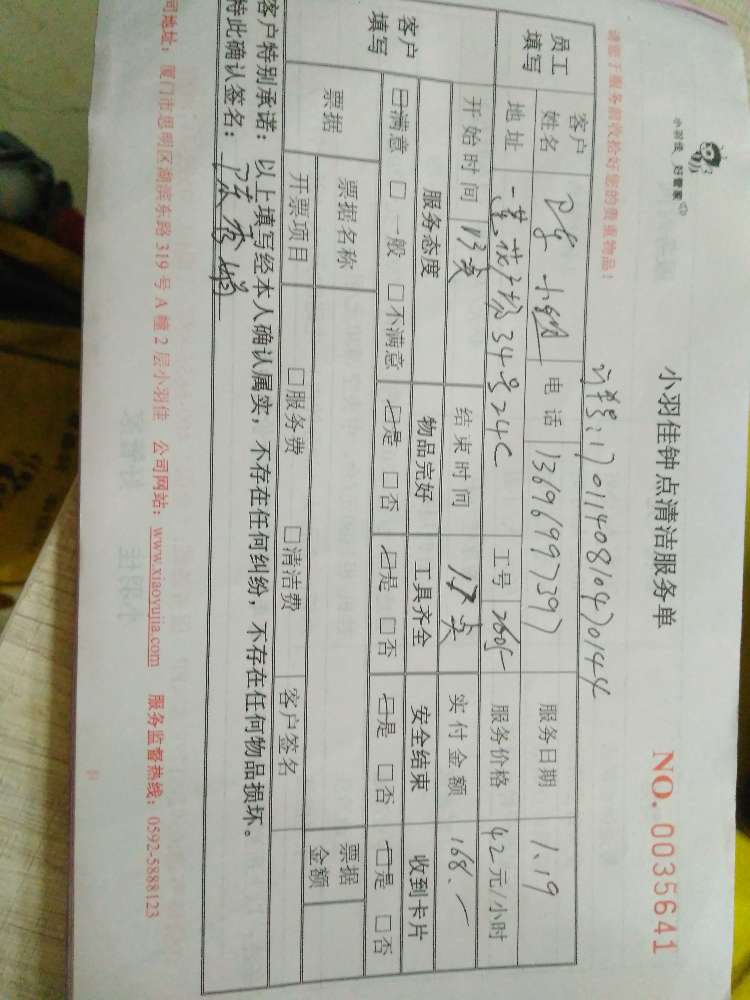 小羽佳 好管家
小羽佳钟点清洁服务单
NO. 0035641
请您于服务前收拾好您的贵重物品！
订单号:1701140810470144
员工填写 客户姓名 小姐 电话 13696997397 服务日期 1.19
地址 34号24C 工号 2605 服务价格 42元/小时
客户填写 开始时间 13点 结束时间 17点 实付金额 168.一
服务态度 物品完好 工具齐全 安全结束 收到卡片
☑满意 □一般 □不满意 ☑是 □否 ☑是 □否 ☑是 □否 ☑是 □否
票据 票据名称 票据金额
开票项目 □服务费 □清洁费 客户签名
客户特别承诺：以上填写经本人确认属实，不存在任何纠纷，不存在任何物品损坏。
特此确认签名：
司地址：厦门市思明区湖滨东路 319 号 A 幢 2 层小羽佳 公司网站：www.xiaoyujia.com 服务监督热线：0592-5888123